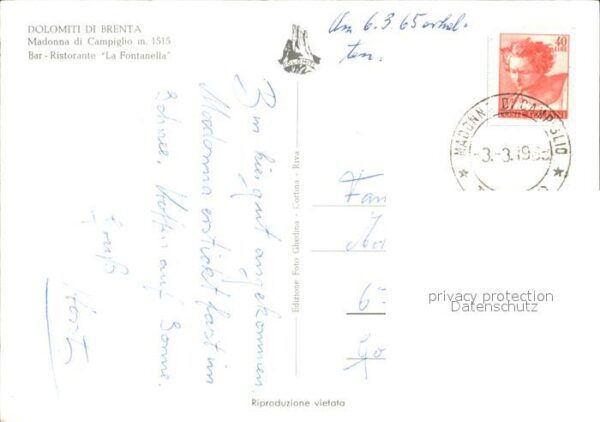 DOLOMITI DI BRENTA
Madonna di Campiglio m. 1515
Bar - Ristorante "La Fontanella"
Am 6.3.65 erhal-
ten.
40
LIRE
MADONNA DI CAMPIGLIO
-3.-3.19
Bin hier gut angekommen.
Madonna erstickt fast im
Schnee. Hoffen auf Sonne.
Gruß
Horst
Edizione Foto Ghedina - Cortina - Riva
Fam
6
Go
privacy protection
Datenschutz
Riproduzione vietata